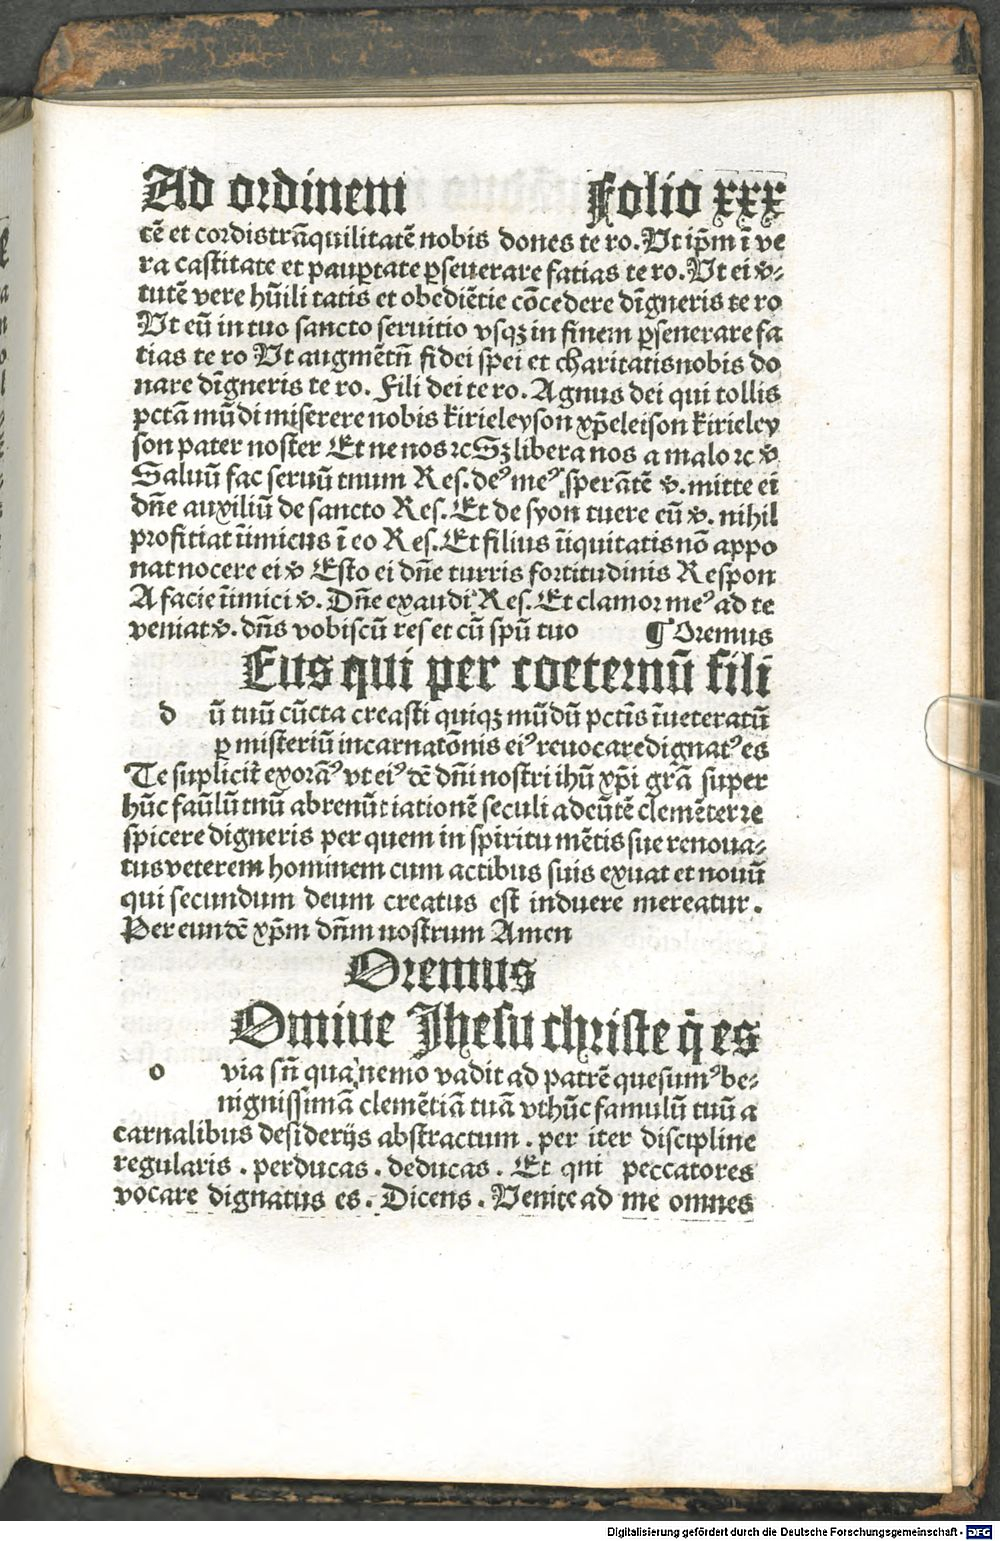 Ad ordinem Folio xxx
cẽ et cordistrãquilitatẽ nobis dones te ro. Ut ip̃m ĩ ve
ra castitate et paup̲tate p̲seuerare fatias te ro. Ut ei ℣⸗
tutẽ vere hũili tatis et obediẽtie cõcedere dĩgneris te ro
Ut eũ in tuo sancto seruitio vsqꝫ in finem p̲senerare fa
tias te ro Ut augmẽtñ fidei spei et charitatisnobis do
nare dĩgneris te ro. Fili dei te ro. Agnus dei qui tollis
pctã mũdi miserere nobis kirieleyson xp̃eleison kirieley
son pater noster Et ne nos ⁊c Sꝫ libera nos a malo ⁊c ℣
Saluũ fac seruũ tnum Res. deꝰ meꝰ sperãtẽ ℣. mitte ei
dñe auxiliũ de sancto Res. Et de syon tuere eũ ℣. nihil
profitiat ĩimicus ĩ eo Res. Et filius ĩiquitatis nõ appo
nat nocere ei ℣ Esto ei dñe turris fortitudinis Respon
A facie ĩimici ℣. Dñe exaudi Res. Et clamor meꝰ ad te
veniat ℣. dñs vobiscũ res et cũ spũ tuo ¶ Oremus
Eus qui per coeternũ fili
d ũ tuũ cũcta creasti quiqꝫ mũdũ pctĩs ĩueteratũ
p̲ misteriũ incarnatõnis eiꝰ reuocare dignatꝰ es
Te suplicit̃ exorãꝰ vt eiꝰ dẽ dñi nostri ihũ xp̃i gr̃a super
hũc faũlũ tnũ abrenũt iationẽ seculi adcũtẽ clemẽter ꝛe
spicere digneris per quem in spiritu mẽtis sue renoua⸗
tus veterem hominem cum actibus suis exuat et nouũ
qui secundum deum creatus est induere mereatur.
Per eundẽ xp̃m dñm nostrum Amen
Oremus
Omiue Jhesu christe q̃ es
o via sñ qua nemo vadit ad patrẽ quesumꝰ be⸗
nignissimã clemẽtiã tuã vt hũc famulũ tuũ a
carnalibus desiderijs abstractum. per iter discipline
regularis. perducas. deducas. Et qni peccatores
vocare dignatus es. Dicens. Venite ad me omnes
Digitalisierung gefördert durch die Deutsche Forschungsgemeinschaft - DFG